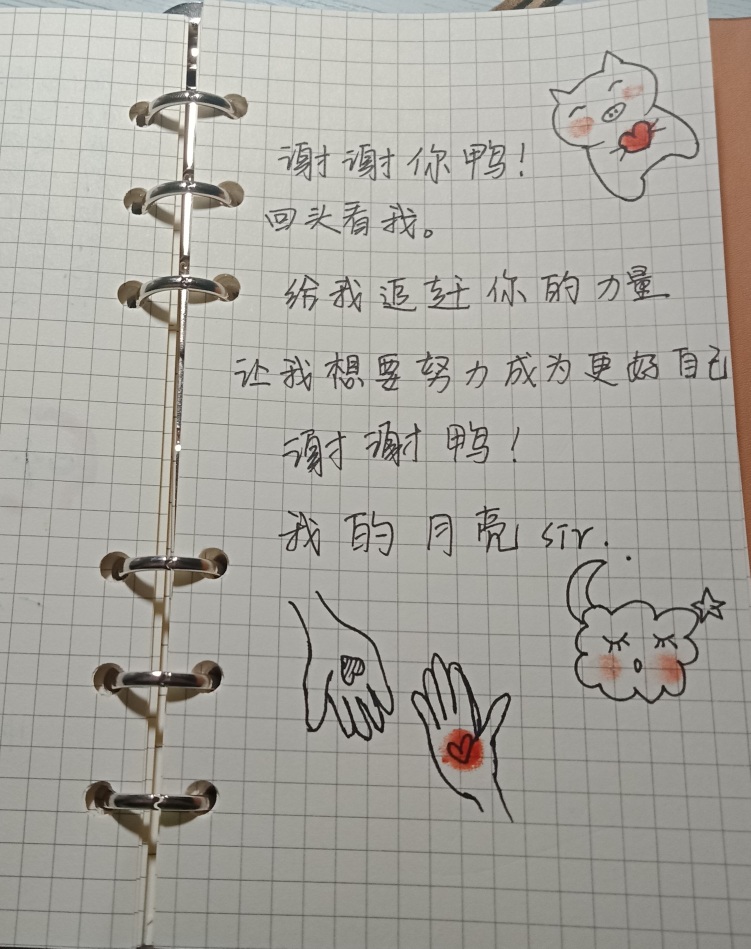 谢谢你鸭！
回头看我。
给我追赶你的力量
让我想要努力成为更好自己
谢谢鸭！
我的月亮sir.